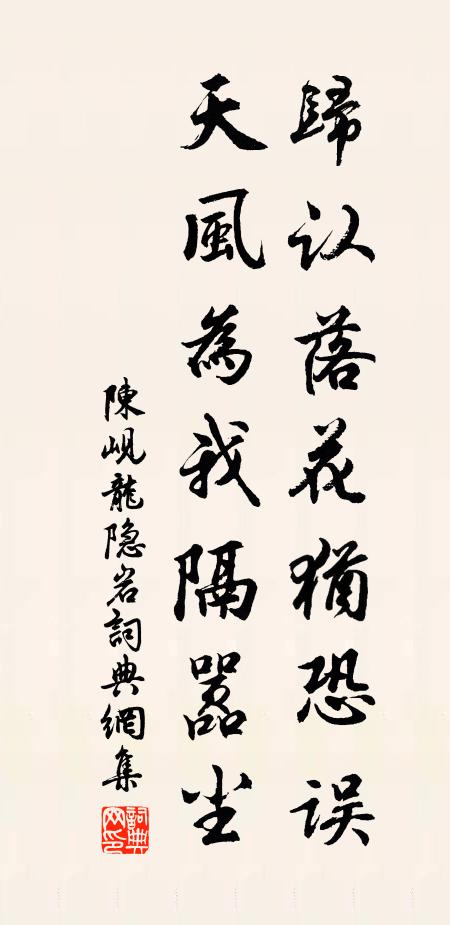 歸认落花猶恐误
天風為我隔嚣尘
陳峴龍隐岩詞典網集
詞典网印